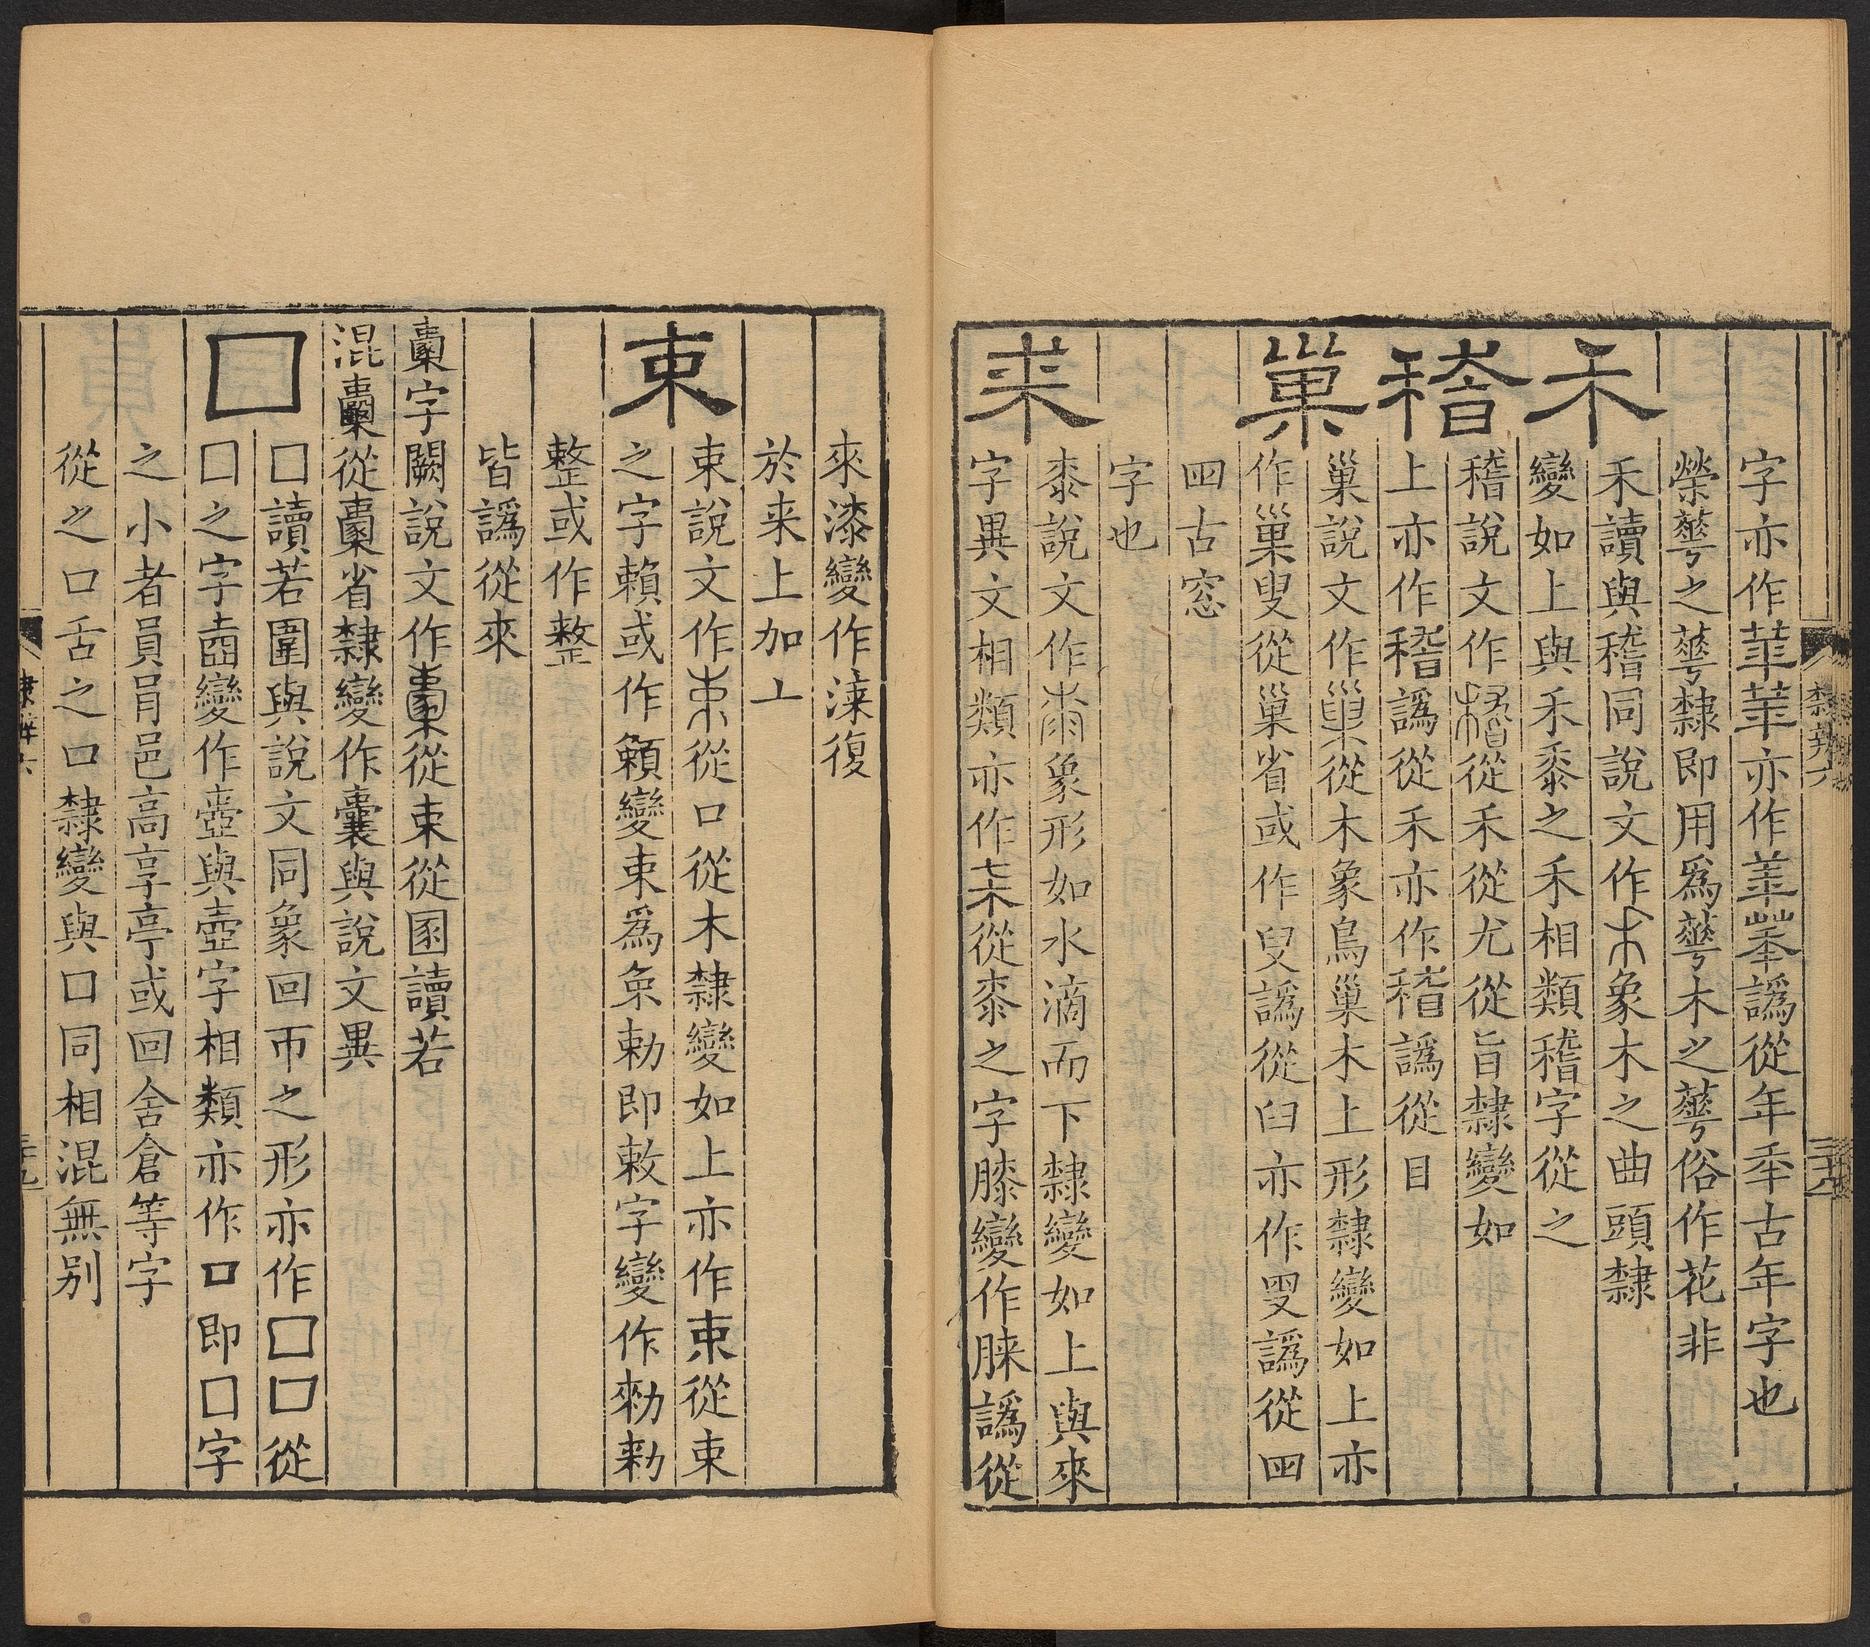 字亦作𠦬亦作譌從年秊古年字也
榮蕚之蕚隸即用爲蕚木之蕚俗作花非
禾
禾讀與稽同說文作象木之曲頭隸
變如上與禾黍之禾相類稽字從之
稽
稽說文作從禾從尤從旨隸變如
上亦作稽譌從禾亦作稽譌從目
巢
巢說文作從木象鳥巢木上形隸變如上亦
作巢叟從巢省或作臾譌從臼亦作叟譌從四
四古窓
字也
桼
桼說文作象形如水滴而下隸變如上與來
字異文相類亦作從桼之字膝變作脨譌從
來漆變作淶復
於来上加丄
束
束說文作從口從木隸變如上亦作束從束
之字賴或作頼變束爲𠂬勅即敕字變作勑勅
整或作整
皆譌從來
㯻字闕說文作㯻從束從圂讀若
混㯻從㯻省隸變作囊與說文異
囗
囗讀若圍與說文同象回帀之形亦作囗囗從
囗之字壺變作壺與壺字相類亦作口即囗字
之小者員肙邑高享亭或回舍倉等字
從之口舌之口隸變與囗同相混無别
隸辨六